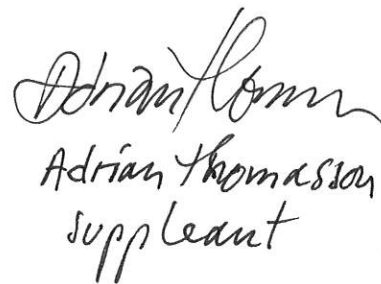 Adrian Thomasson
Adrian Thomasson
suppleant